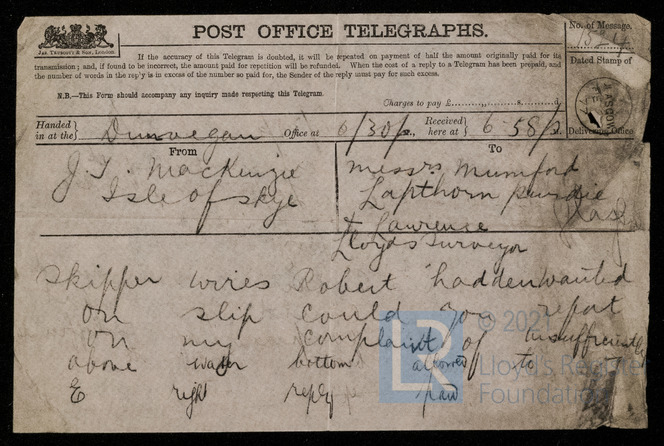 POST OFFICE TELEGRAPHS.
Jas. Truscott & Son, London
If the accuracy of this Telegram is doubted, it will be repeated on payment of half the amount originally paid for its
transmission; and, if found to be incorrect, the amount paid for repetition will be refunded. When the cost of a reply to a Telegram has been prepaid, and
the number of words in the reply is in excess of the number so paid for, the Sender of the reply must pay for such excess.
N.B.—This Form should accompany any inquiry made respecting this Telegram.
Charges to pay £ s. d.
No. of Message.
Dated Stamp of
Delivering Office
Handed in at the } Dunvegan Office at 6/30/p. Received here at } 6-58/p.
From
J. T. MacKenzie
Isle of Skye
To
Messrs Mumford
Lapthorn Purdie
& Lawrence
Lloyds Surveyor
Glas
Skipper wires Robert hadden wanted
on slip could you report
on my complaint of insufficiently
above water bottom allowed to
E right reply paid
© 202
Lloyd's Register
Foundation
LR